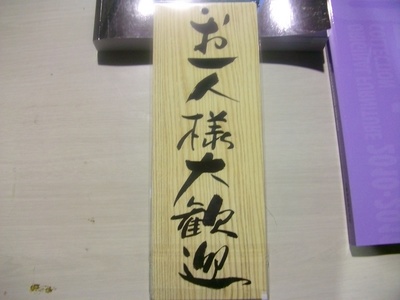 お一人様大歓迎